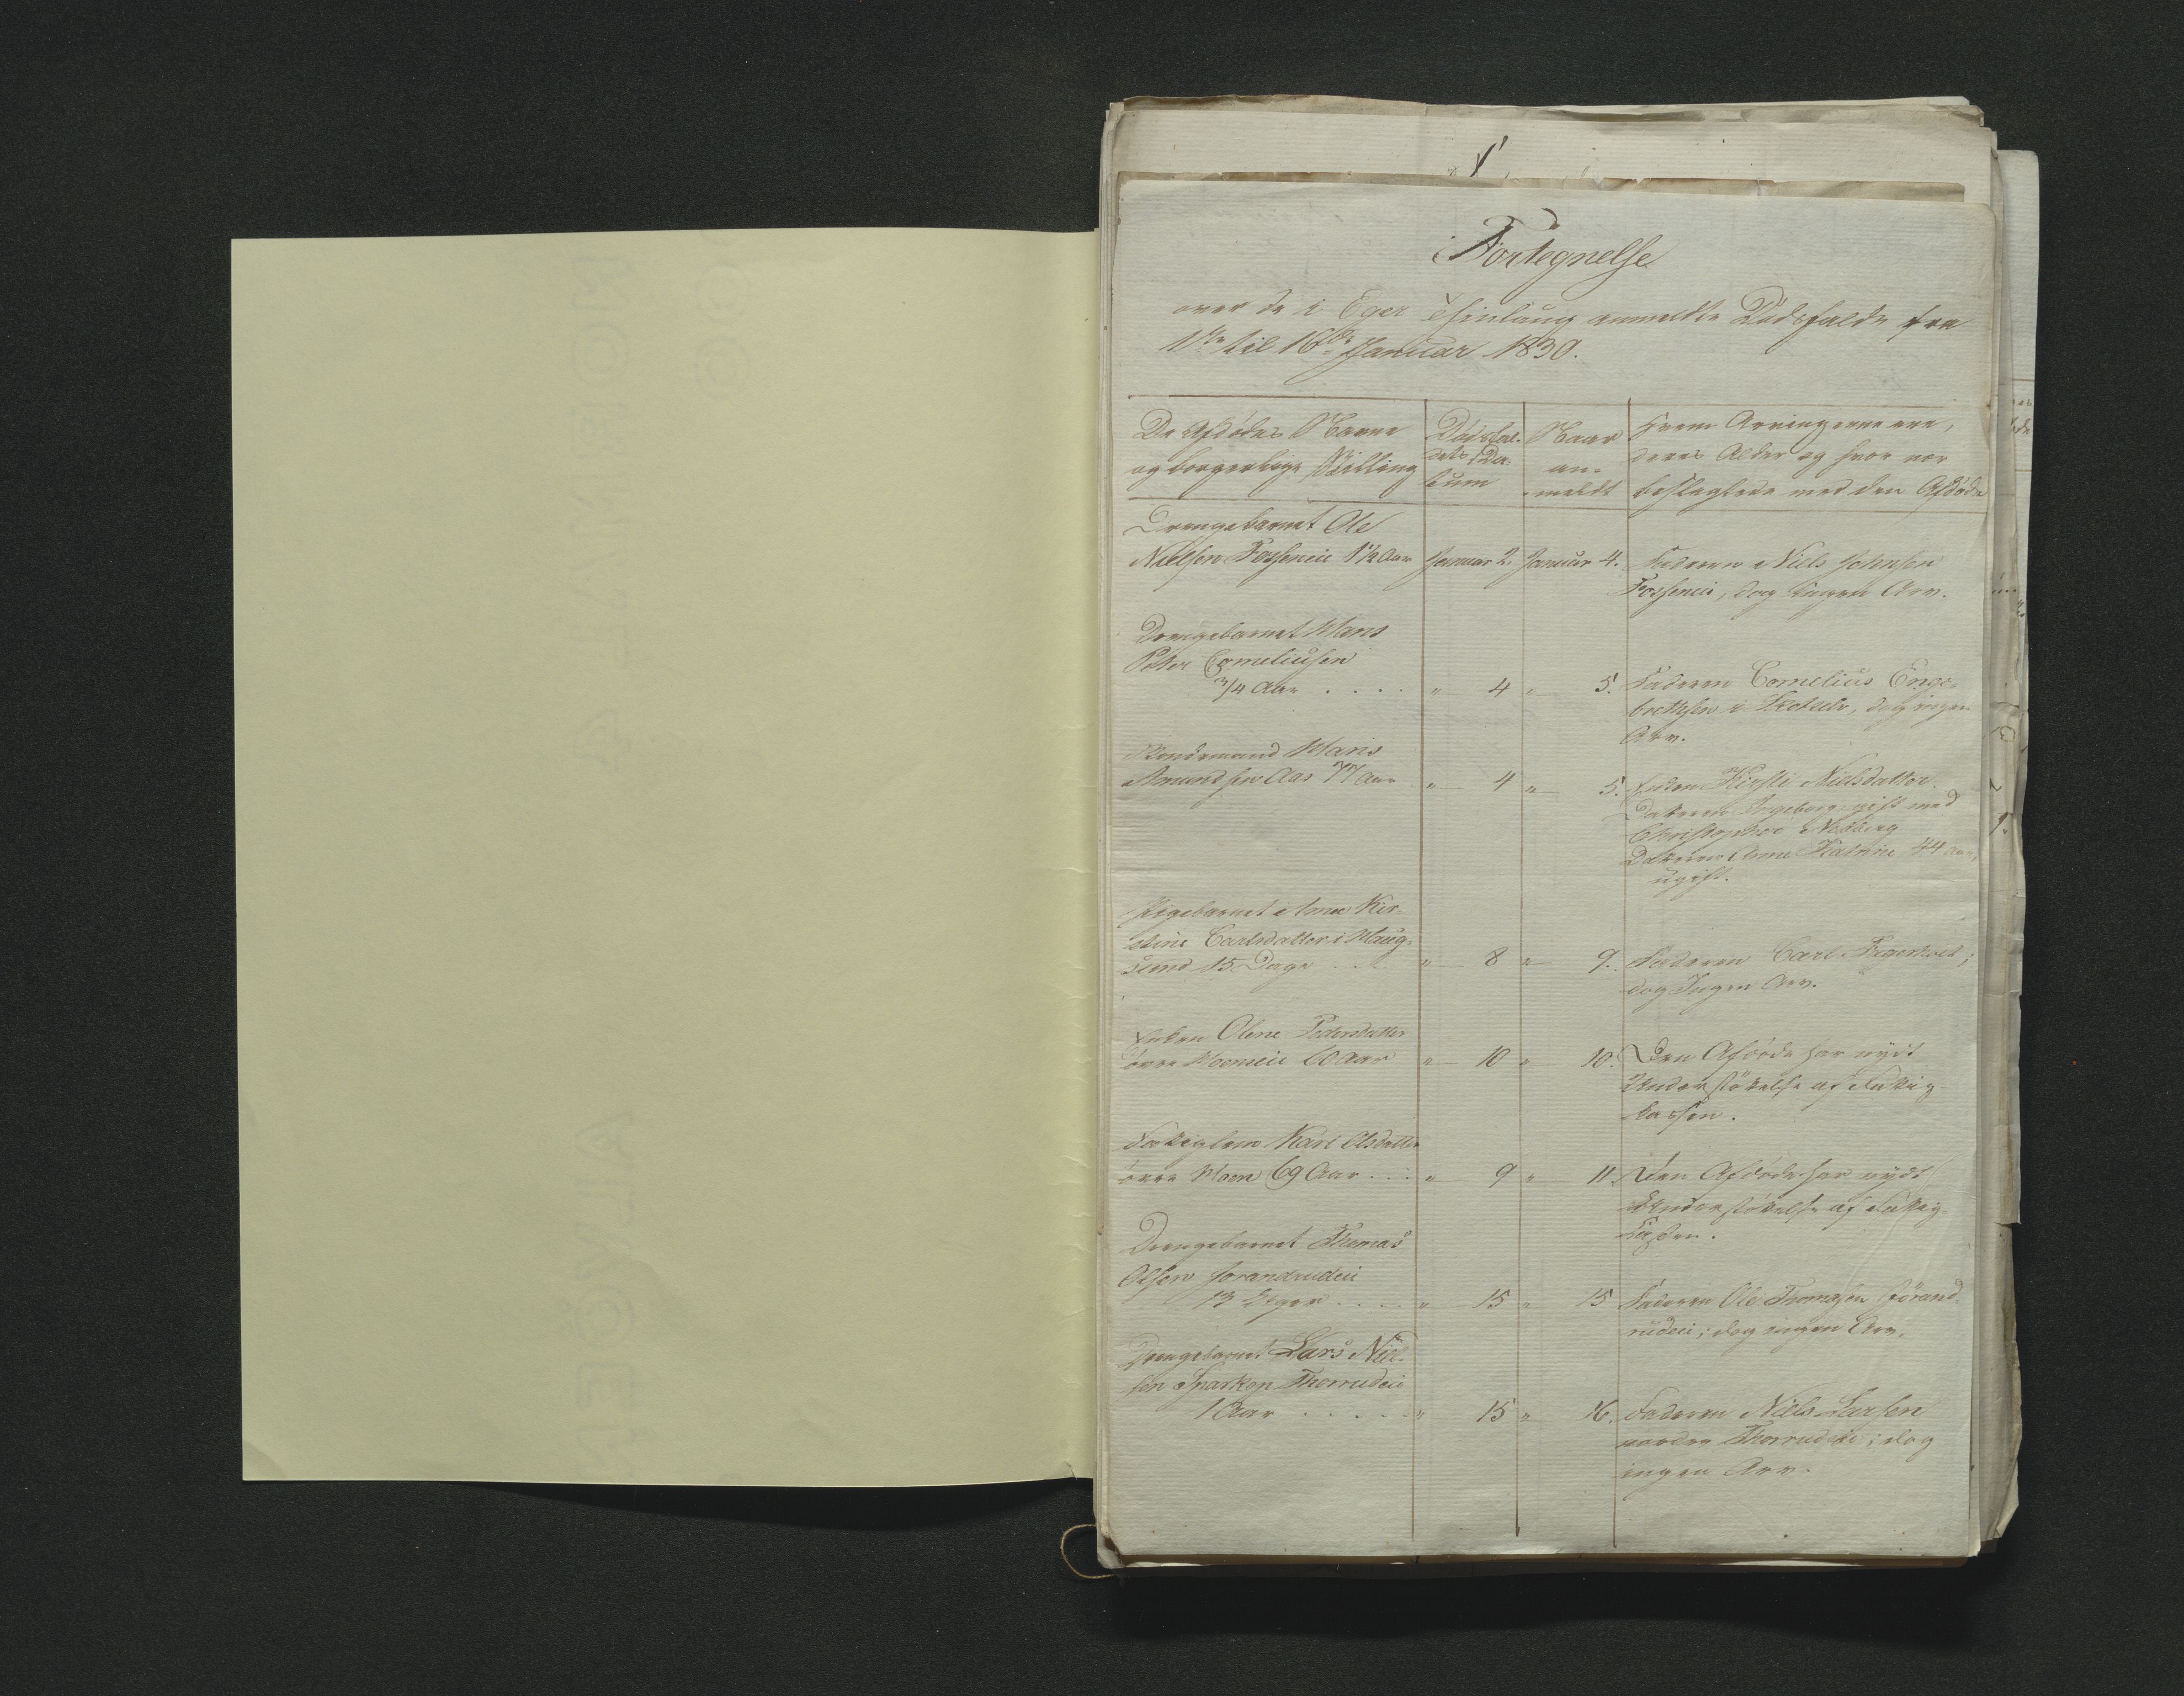 Fortegnelse
over de i Eger Thinlaug anmeldte Dödsfalde fra
1ste til 16de Januar 1830.
De Afdödes Navne
og borgerlige Stilling
Dödsfal-
dets Da-
tum
Naar
an-
meldt
Hvem Arvingerne ere,
deres Alder og hvor nær
beslegtede med den Afdöde
Drengebarnet Ole
Nielsen Fossseneie 1½ Aar Januar 2. Januar 4. Faderen Niels Johnsen
Fosseneie, dog Ingen Arv.
Drengebarnet Hans
Peter Corneliusen
¾ Aar . . . . " 4 " 5. Faderen Cornelius Enge-
brethsen i , dog ingen
Arv.
Bondemand Hans
Amundsen Aas 77 Aar " 4 " 5. Enken Kirsti Nielsdatter.
Datteren Ingeborg, gift med
Christopher
Datteren Anne Katrine 44 Aar,
ugift.
Pigebarnet Anne Kir-
stine Carlsdatter i Haug-
sund 15 Dage . . . " 8 " 9. Faderen Carl ;
dog Ingen Arv.
Enken Olene Pedersdatter
övre Hoeneie 60 Aar " 10 " 10. Den Afdöde har nydt
Understöttelse af Fattig-
kassen.
Fattiglem Kari Olsdatter
övre Hoen 69 Aar . . . " 9 " 11. Den Afdöde har nydt
Understöttelse af Fattig-
Cassen.
Drengebarnet Thomas
Olsen Horandrudeie
13 Uger . . . . " 15 " 15 Faderen Ole Thomasen Hörand-
rudeie; dog ingen Arv.
Drengebarnet Lars Niel-
sen Sparkop Thorrudeie
1 Aar . . . . . " 15 " 16. Faderen Niels Larsen
nordre Thorrudeie; dog
ingen Arv.